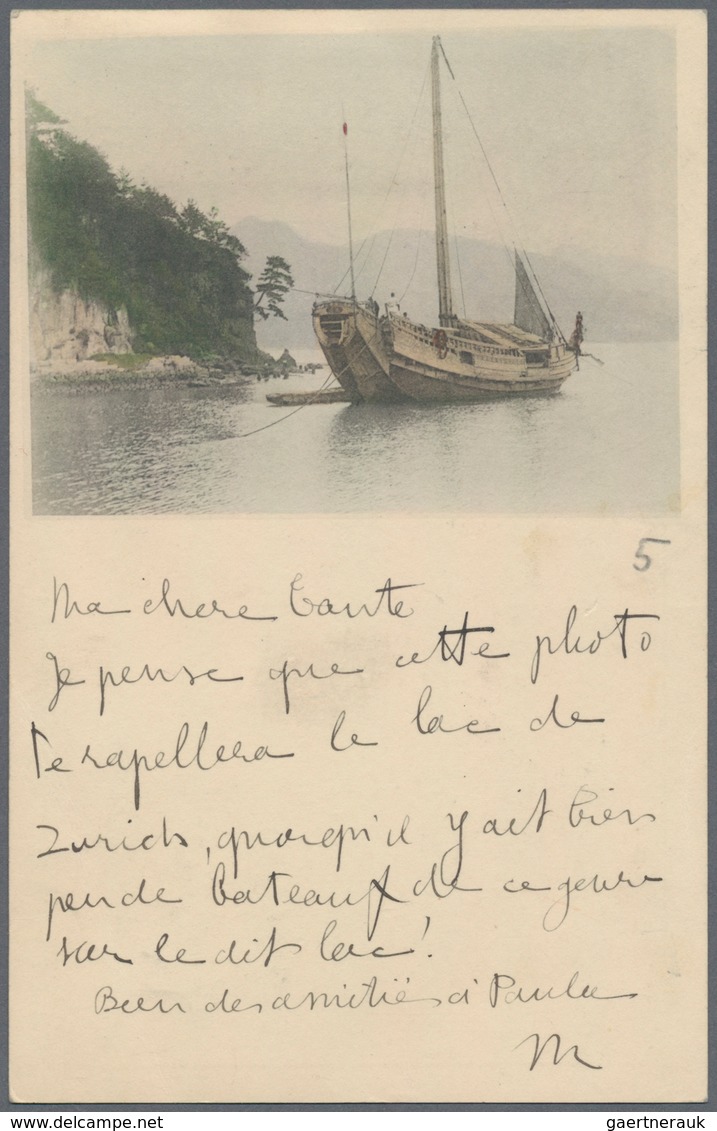 5
Ma chere Tante
Je pense que cette photo
te rapellera le lac de
Zurich, quoiqu'il y ait bien
peu de bateaux de ce genre
sur le dit lac!
Bien des amitiés à Paula
M
gaertnerauk